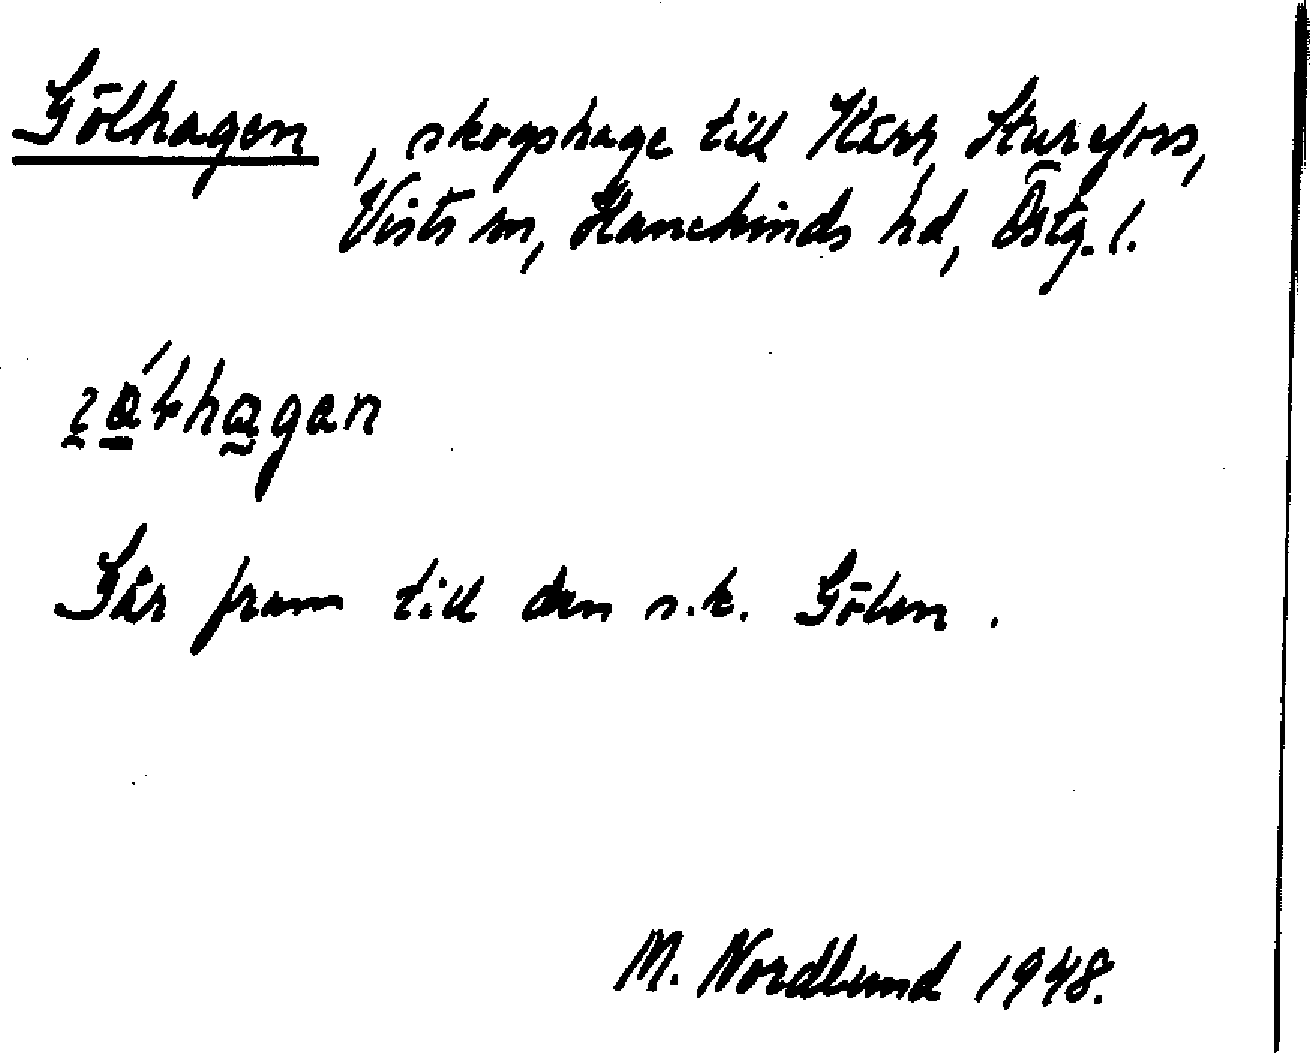 Gölhagen, skogshage till Kärr, Sturefors,
Vists sn, Hanekinds hd, Östg. l.
Går fram till den s.k. Gölen.
M. Nordlund 1948.